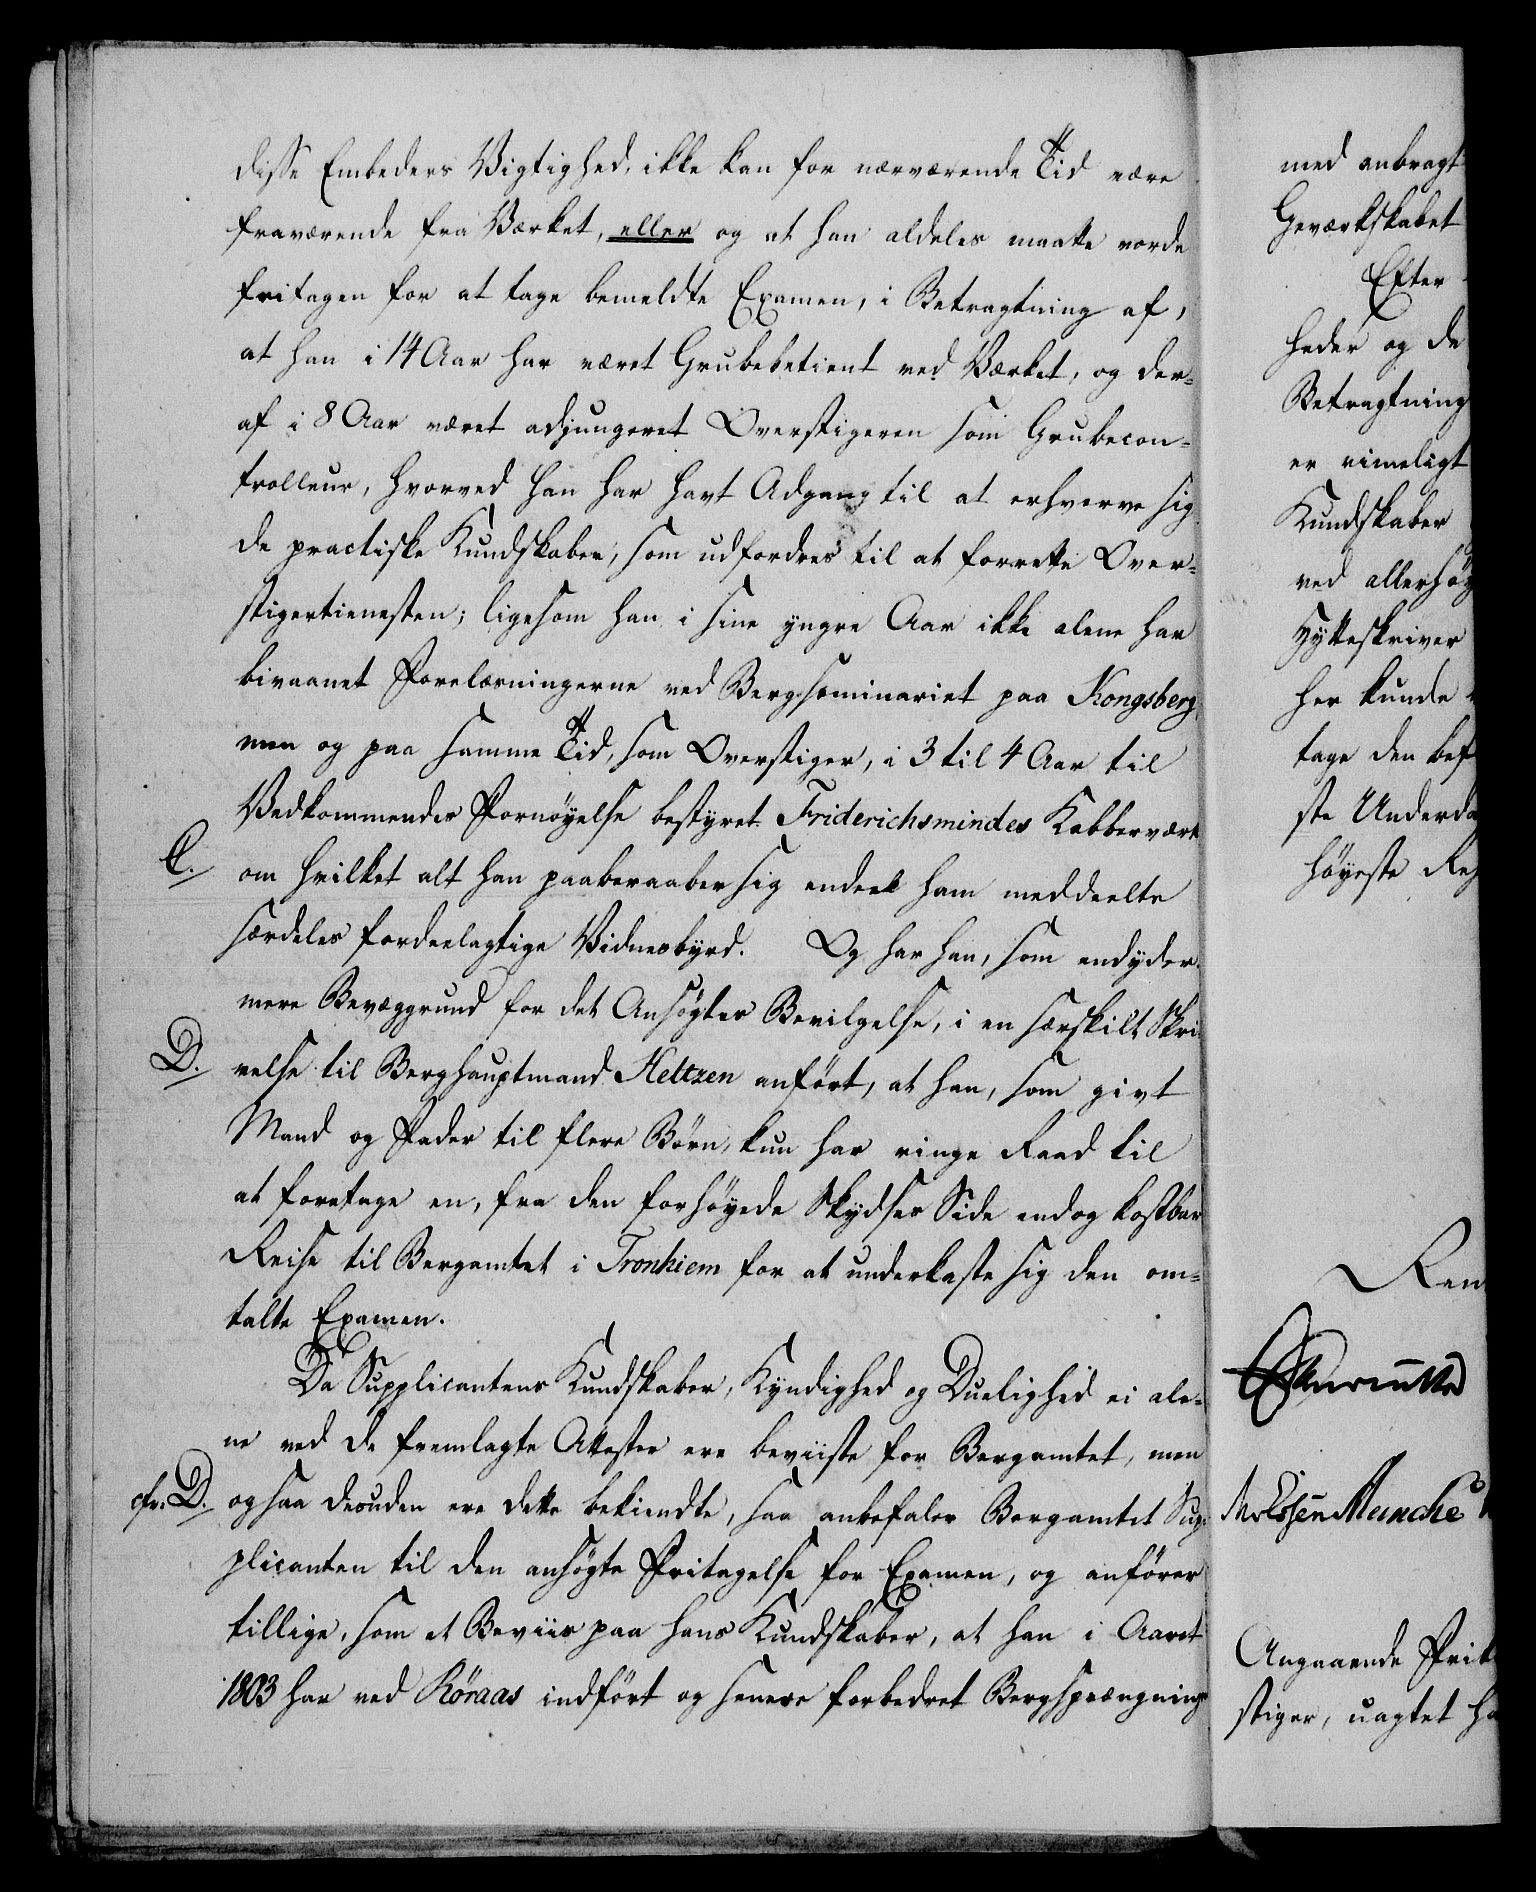 disse Embeders Vigtighed, ikke kan for nærværende Tid være
fraværende fra Værket, eller og at han aldeles maatte vorde
fritagen for at tage bemeldte Examen, i Betragtning af,
at han i 14 Aar har været Grubebetient ved Værket, og der-
af i 8 Aar været adjungeret Overstigeren som Grubecon-
trolleur, hvorved han har havt Adgang til at erhverve sig
de practiske Kundskaber, som udfordres til at forrette Over-
stigertienesten; ligesom han i sine yngre Aar ikke alene har
bivaanet Forelæsningerne ved Bergseminariet paa Kongsberg,
men og paa samme Tid, som Overstiger, i 3 til 4 Aar til
Vedkommendes Fornøyelse bestyret Friderichsmindes Kobberværk
C. om hvilket alt han paaberaaber sig endeel ham meddeelte
særdeles fordeelagtige Vidnesbyrd. Og har han, som endyder-
mere Bevæggrund for det Ansøgtes Bevilgelse, i en særskilt Skri-
D. velse til Berghauptmand Heltzen anført, at han, som givt
Mand og Fader til flere Børn, kun har ringe Raad til
at foretage en, fra den forhøyede Skydses Side endog kostbar
Reise til Bergamtet i Tronhiem for at underkaste sig den om-
talte Examen.
Da Supplicantens Kundskaber, Kyndighed og Duelighed ei ale-
ne ved de fremlagte Attester ere beviiste for Bergamtet, men
cfr. D. ogsaa desuden ere dette bekiendte, saa anbefaler Bergamtet Sup-
plicanten til den ansøgte Fritagelse for Examen, og anfører
tillige, som et Beviis paa hans Kundskaber, at han i Aaret
1803 har ved Røraas indført og senere forbedret Bergsprængnings
med anbragt
Geværkskabet
Efter
heder og de
Betragtning
er rimeligt
Kundskaber
ved allerhøy
Hytteskriver
her kunde
tage den bef
ste Underda
høyeste Res
Ren
Munche
Angaaende Frit
stiger, uagtet ha